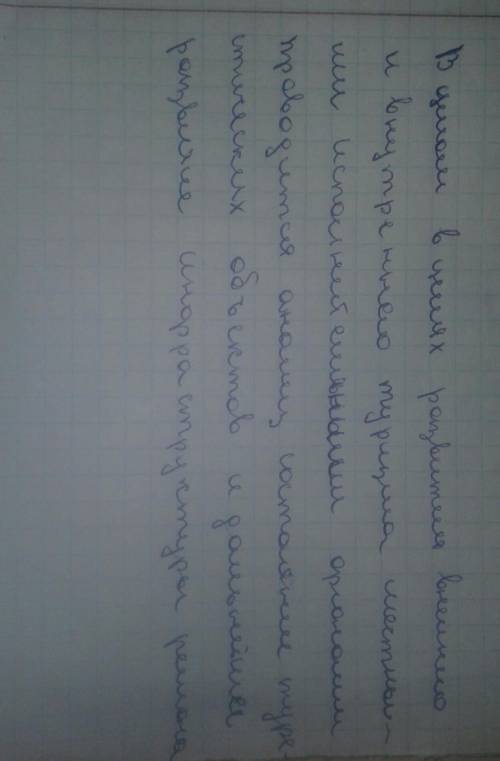 В целом в целях развития внешнего
и внутреннего туризма местны-
ми исполнительными органами
проводится анализ состояния тури-
стических объектов и дальнейшее
развитие инфраструктуры региона